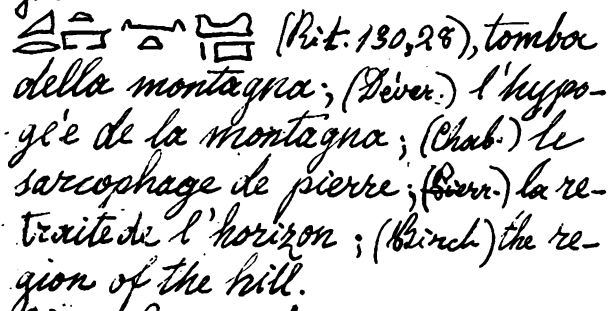 (Rit. 130,28), tomba
della montagna; (Déver.) l'hypo-
gée de la montagna; (Chab.) le
sarcophage de pierre; (Pierr.) la re-
traite de l'horizon; (Birch) the re-
gion of the hill.